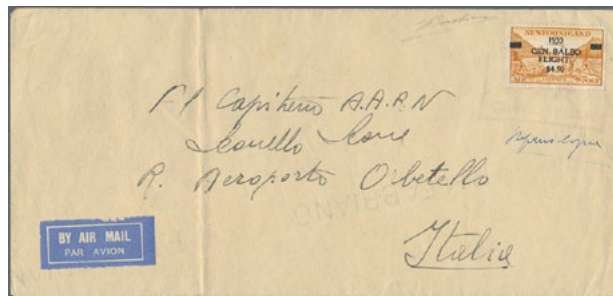 NEWFOUNDLAND
1933
GEN. BALBO
FLIGHT.
$4.50
Al Capitano A.A.R.N
Leonello Leone
R. Aeroporto Orbetello
Italia
BY AIR MAIL
PAR AVION